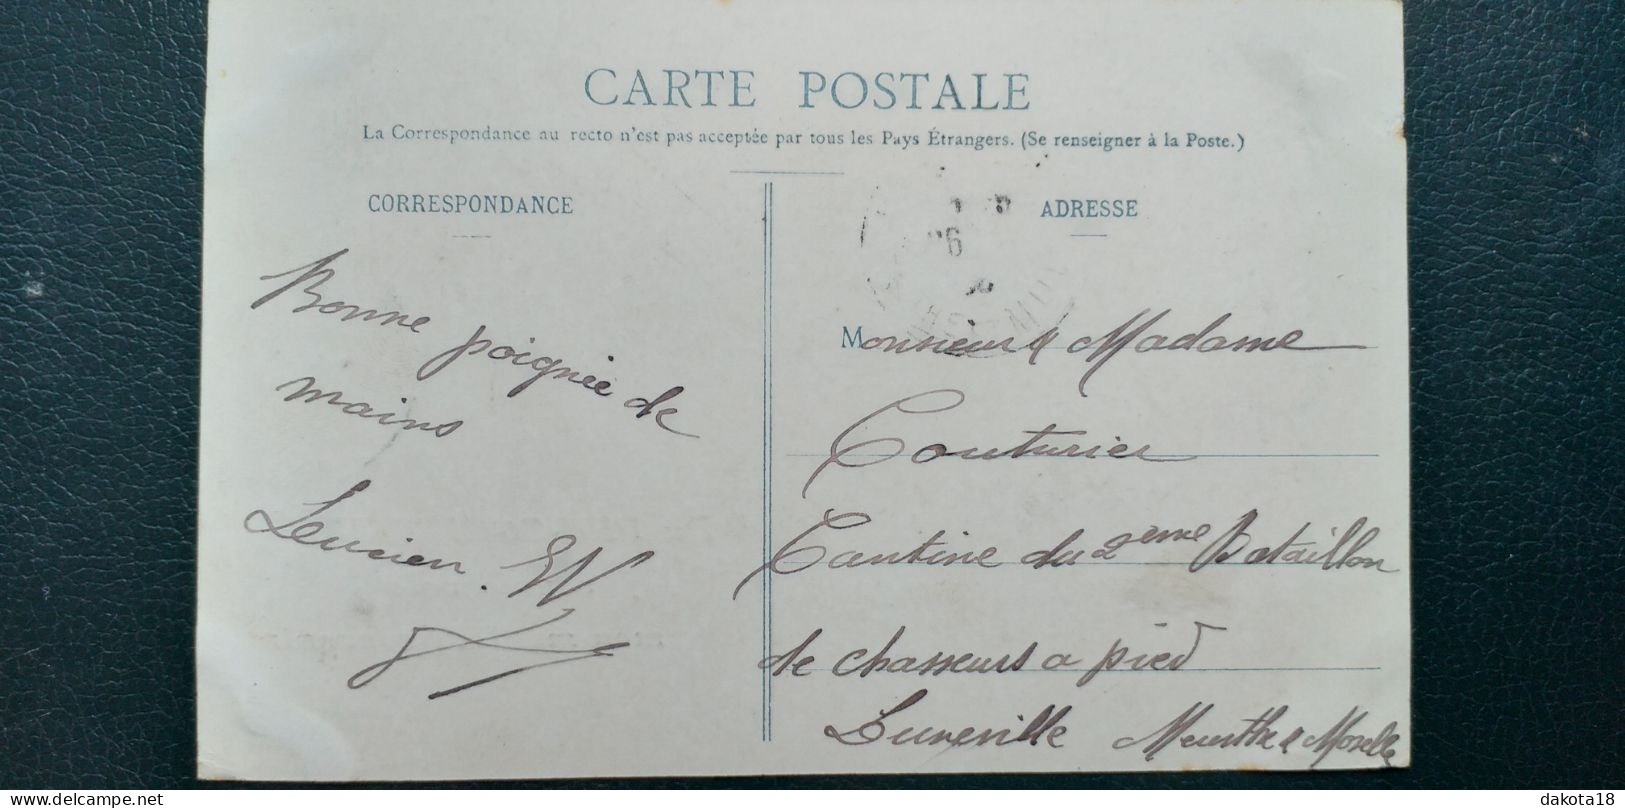 CARTE POSTALE
La Correspondance au recto n'est pas acceptée par tous les Pays Étrangers. (Se renseigner à la Poste.)
CORRESPONDANCE
Bonne poignée de
mains
Lucien
ADRESSE
Monsieur & Madame
Couturier
Cantine du 2eme Bataillon
de chasseurs a pied
Luneville Meurthe & Moselle
dakota18